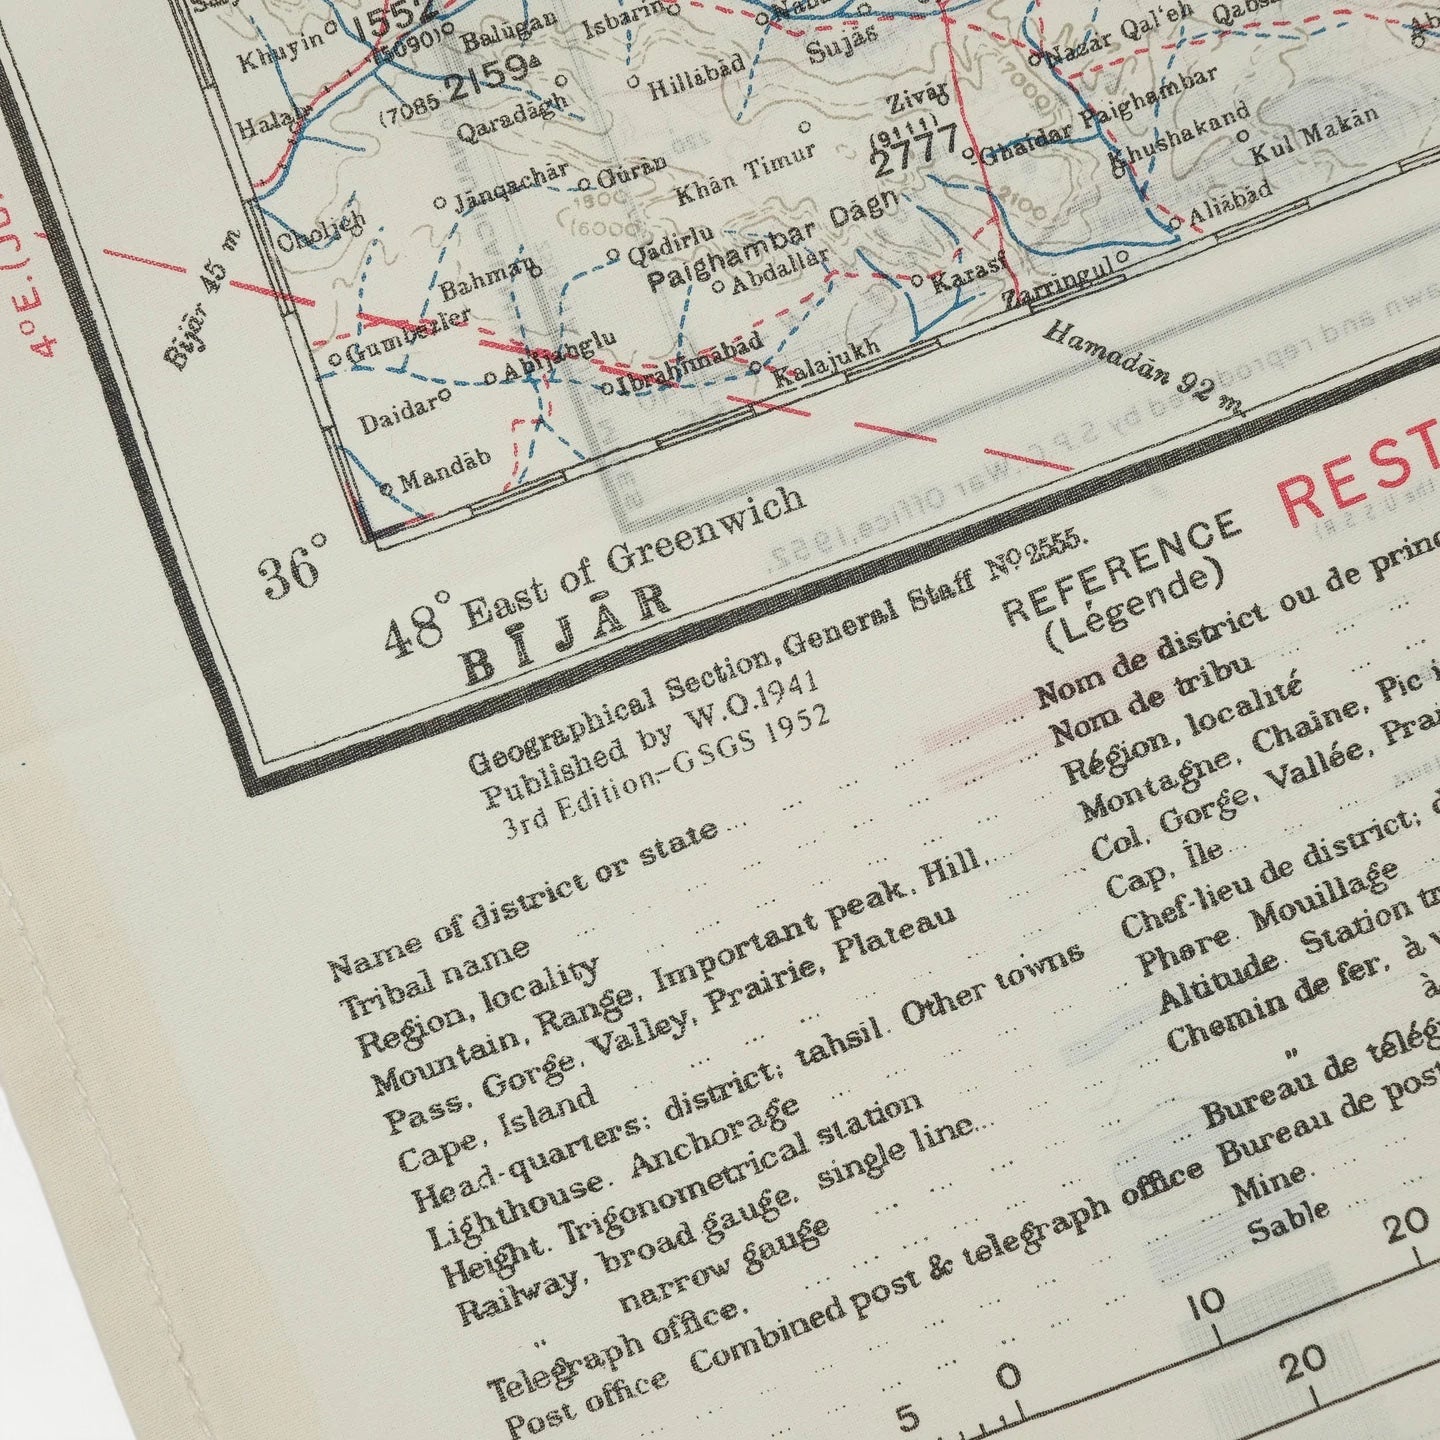 1552
(5090)
Khuyin
Balūgan
Isbarin
Sujās
Nazār Qal'eh
2159
(7085
Hillābād
Halab
Qaradāgh
Zivār
(9111)
2777
Ghaidar Paighambar
Khushakand
Kul Makān
Jānqachār
Gūrān
Khān Timur
Choliçh
Qādirlu
Paighambar Dāgh
Aliābād
Bahman
Abdallār
Karasf
Zarringul
Gumbezler
Abhanglu
Ibrahīmābād
Kalajukh
Daidar
Mandāb
(7000)
2100
Bījār 45 m
Hamadān 92 m
4°E.(JU
36°
48° East of Greenwich
BĪJĀR
REST
Geographical Section, General Staff Nº 2555.
Published by W.O.1941
3rd Edition.-GSGS 1952
REFERENCE
(Légende)
Name of district or state ... Nom de district ou de prin
Tribal name ... Nom de tribu
Region, locality ... Région, localité
Mountain, Range, Important peak. Hill, ... Montagne, Chaîne, Pic i
Pass, Gorge, Valley, Prairie, Plateau ... Col, Gorge, Vallée, Prai
Cape, Island ... Cap, Île
Head-quarters: district; tahsil. Other towns Chef-lieu de district; d
Lighthouse. Anchorage ... Phare. Mouillage
Height. Trigonometrical station ... Altitude. Station tr
Railway, broad gauge, single line... Chemin de fer, à v
" narrow gauge ... " à
Telegraph office. ... Bureau de télég
Post office Combined post & telegraph office Bureau de post
Mine.
Sable
5 0 10 20
20